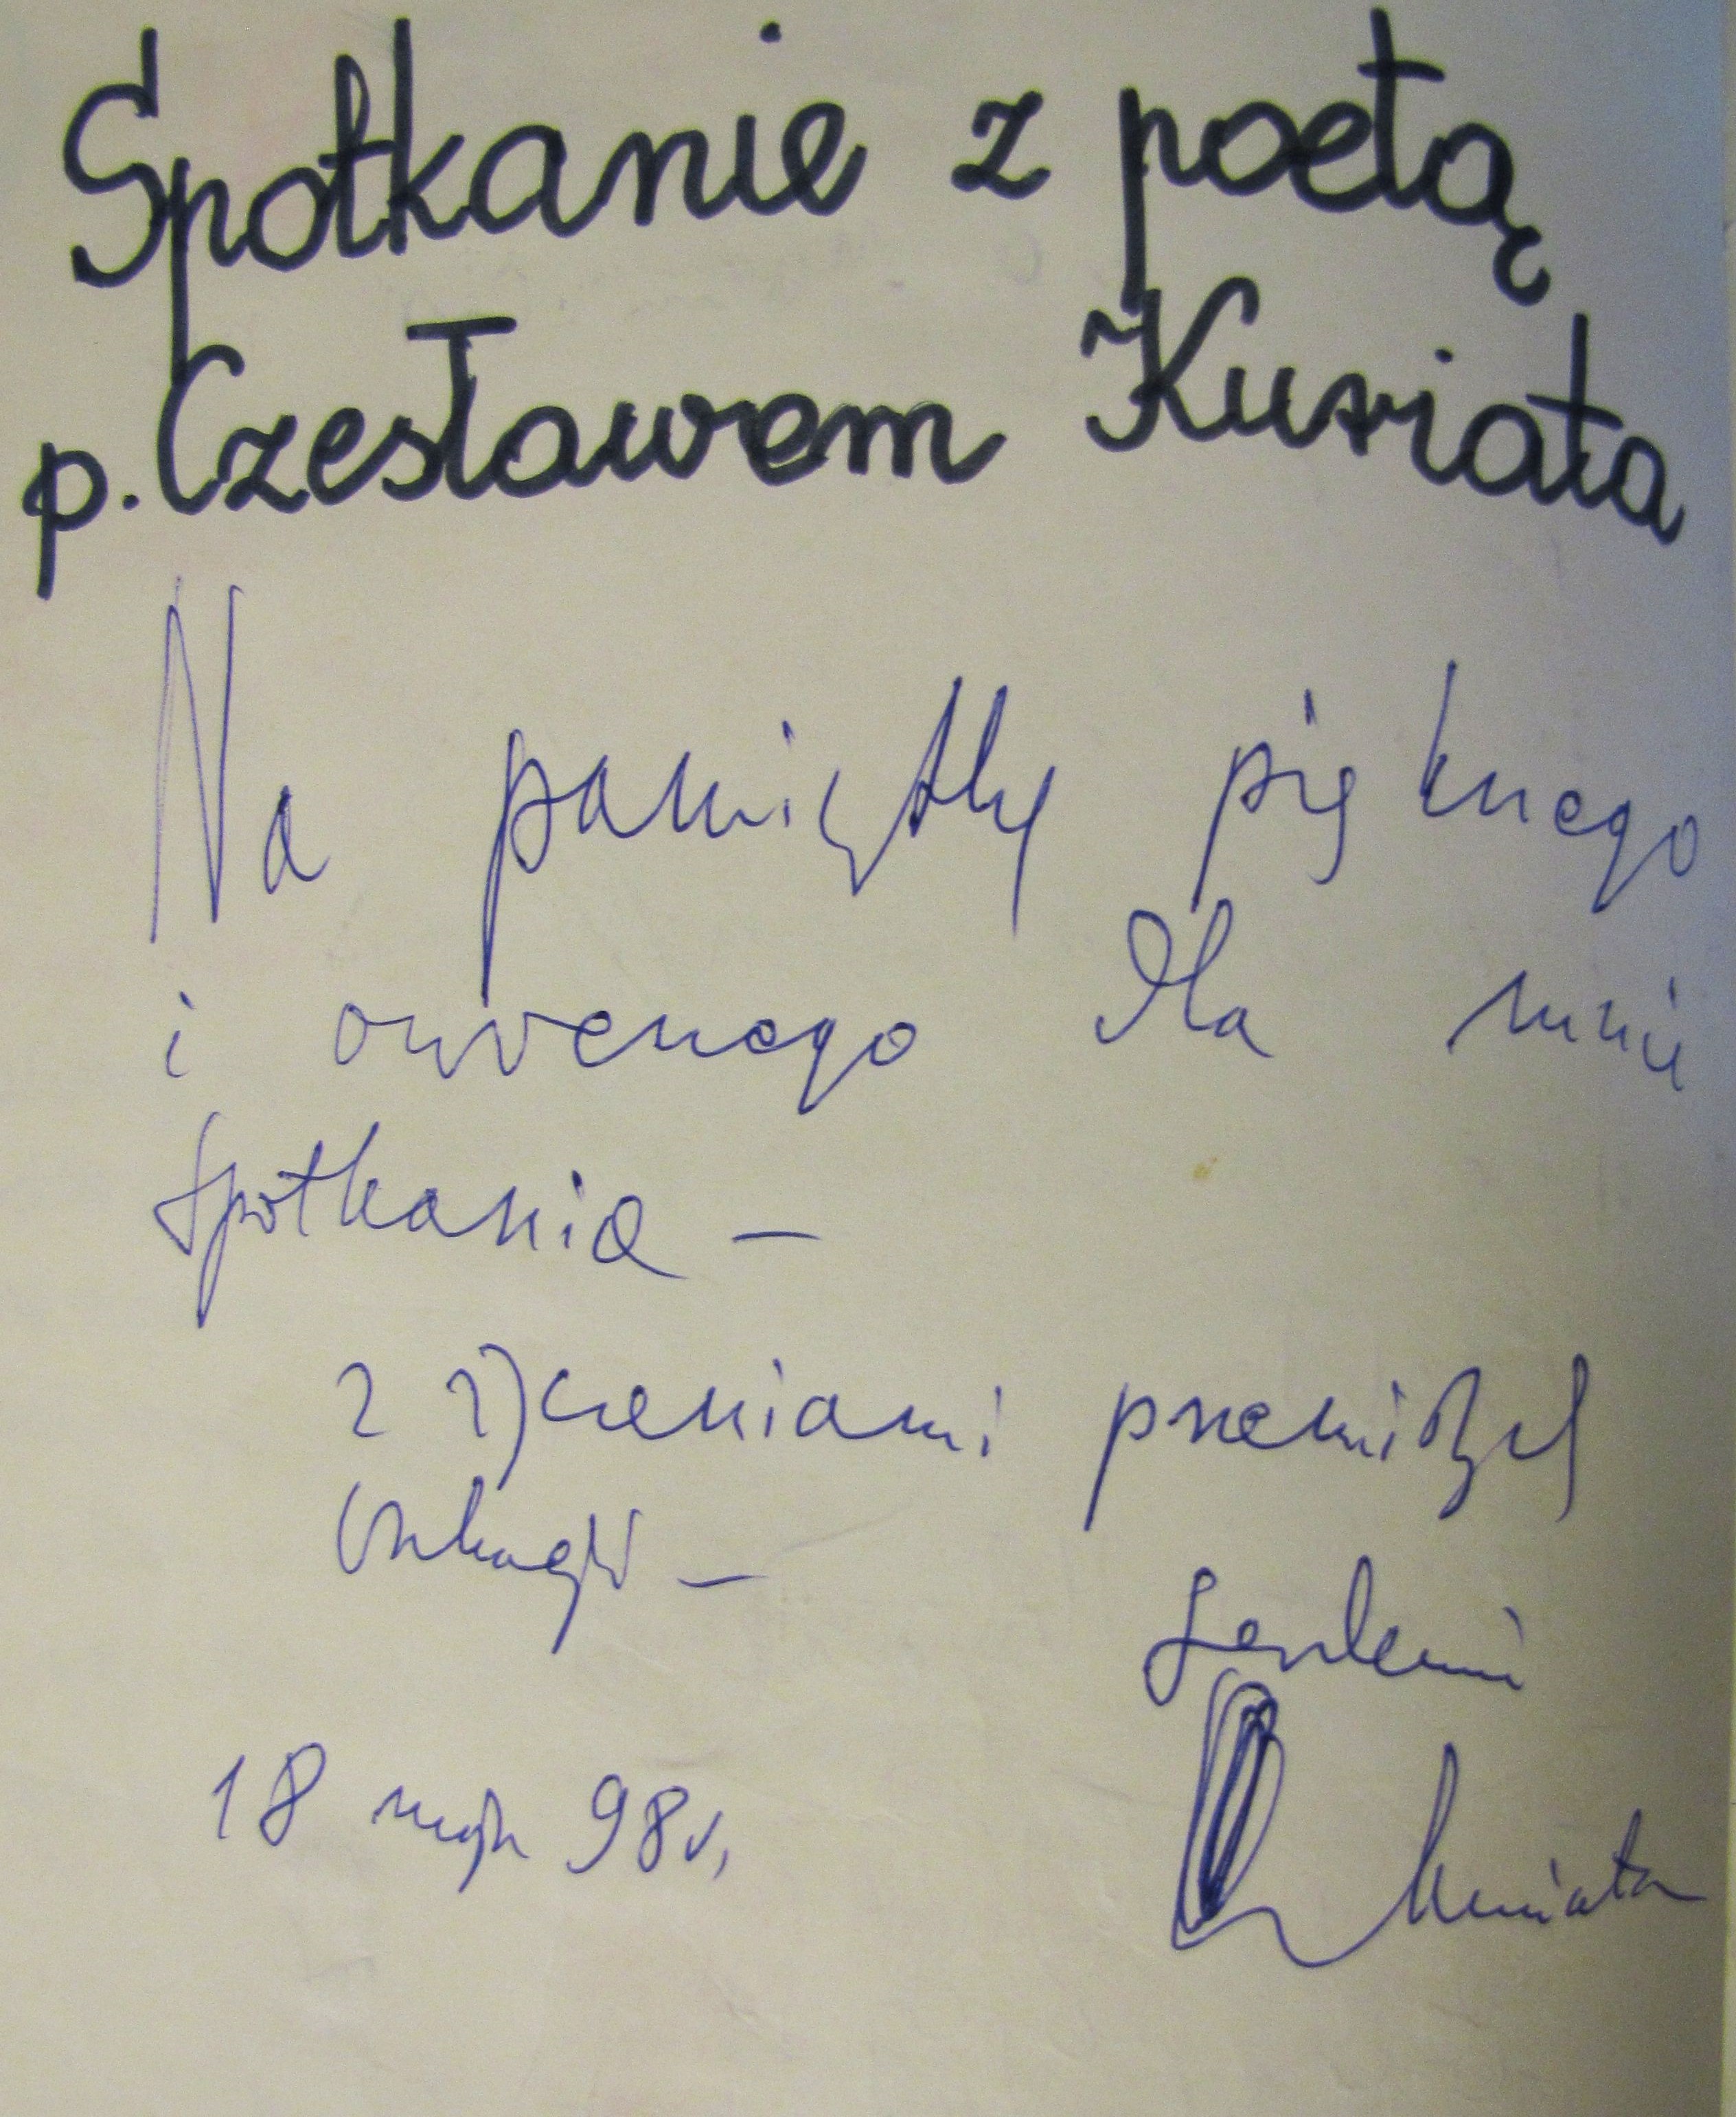 Spotkanie z poetą
p. Czesławem Kuriata
Na pamiątkę pięknego
i owocnego dla mnie
spotkania –
z życzeniami przemiłych
wakacji –
serdecznie
Kuriata
18 maja 98 r.